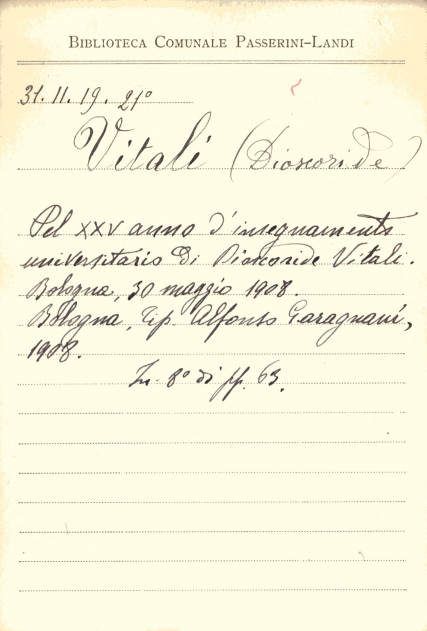 BIBLIOTECA COMUNALE PASSERINI-LANDI
31. 11. 19. 21°
Vitali (Dioscoride)
Pel XXV anno d'insegnamento
universitario di Dioscoride Vitali.
Bologna, 30 maggio 1908.
Bologna, Tip. Alfonso Garagnani,
1908.
In-8° di pp. 63.